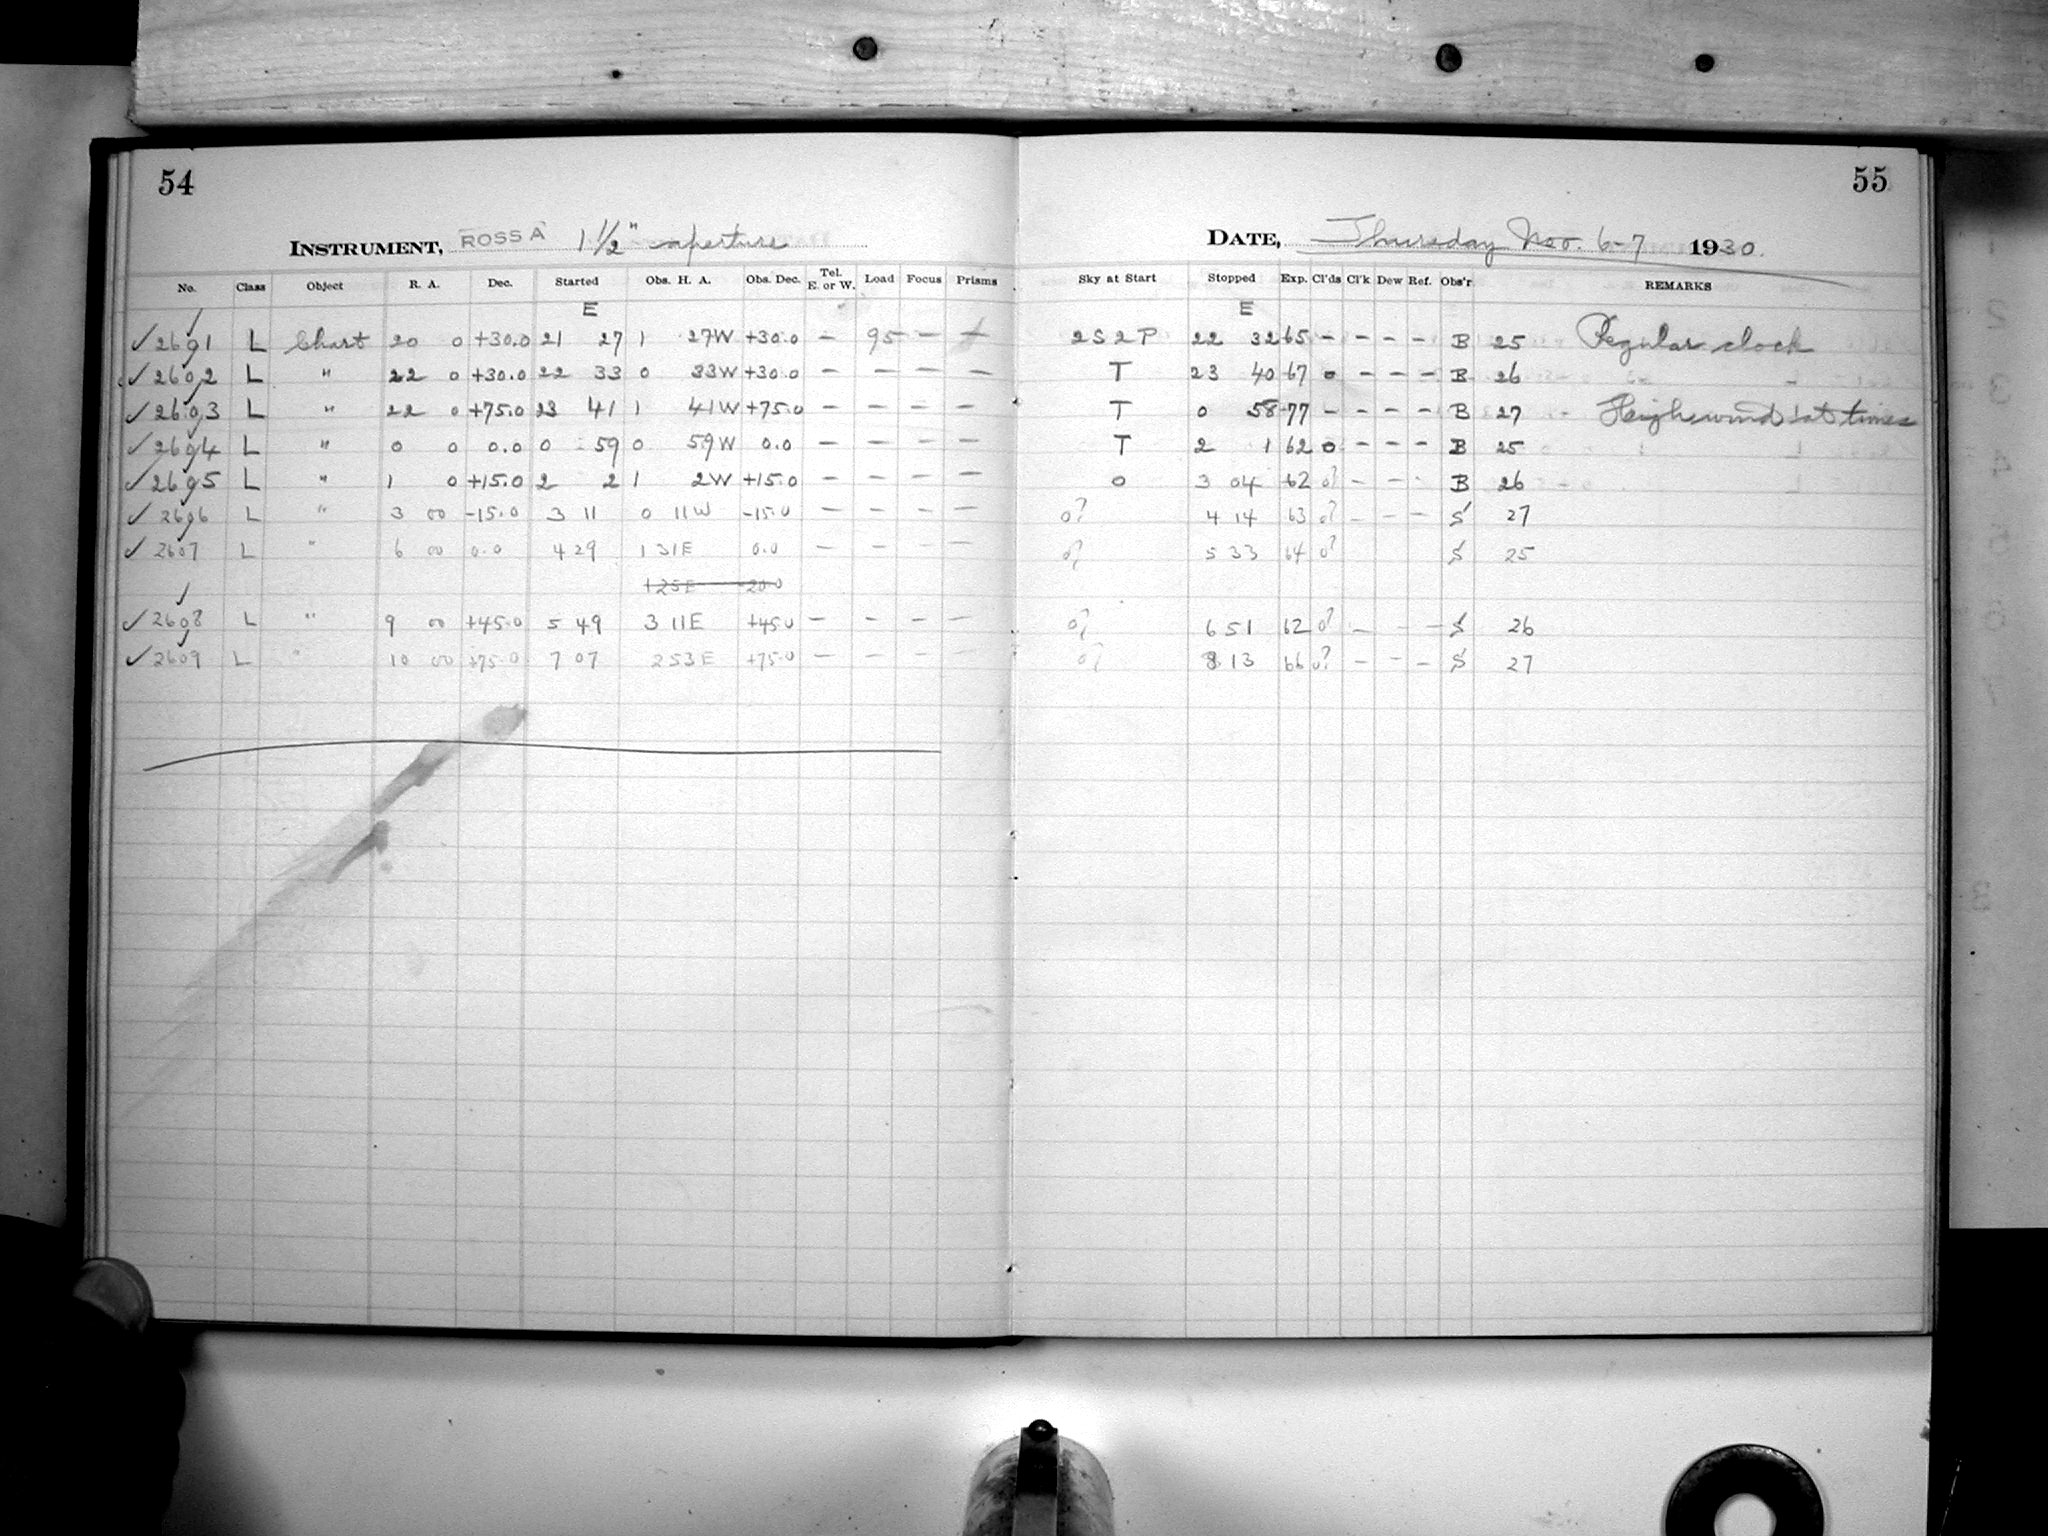 54
INSTRUMENT, ROSS A 1 1/2" aperture
No. Class Object R. A. Dec. Started Obs. H. A. Obs. Dec. Tel. E. or W. Load Focus Prisms
E
✓ L Chart 20 0 +30.0 21 27 1 27W +30.0 – 95 – –
✓ L " 22 0 +30.0 22 33 0 33W +30.0 – – – –
✓ L " 22 0 +75.0 23 41 1 41W +75.0 – – – –
✓ L " 0 0 0.0 0 59 0 59W 0.0 – – – –
✓ L " 1 0 +15.0 2 2 1 2W +15.0 – – – –
✓ L " 3 00 -15.0 3 11 0 11W -15.0 – – – –
✓ 2607 L " 6 00 0.0 4 29 1 31E 0.0 – – – –
1 25E -20.0
✓ 2608 L " 9 00 +45.0 5 49 3 11E +45.0 – – – –
✓ 2609 L " 10 00 +75.0 7 07 2 53E +75.0 – – – –
55
DATE, Thursday Nov. 6-7 1930.
Sky at Start Stopped Exp. Cl'ds Cl'k Dew Ref. Obs'r. REMARKS
E
2S2P 22 32 65 – – – – B 25 Regular clock
T 23 40 67 0 – – – B 26
T 0 58 77 – – – – B 27 High wind at times
T 2 1 62 0 – – – B 25
0 3 04 62 0? – – – B 26
0? 4 14 63 0? – – – S 27
0? 5 33 64 0? S 25
0? 6 51 62 0? – – – S 26
0? 8 13 66 0? – – – S 27